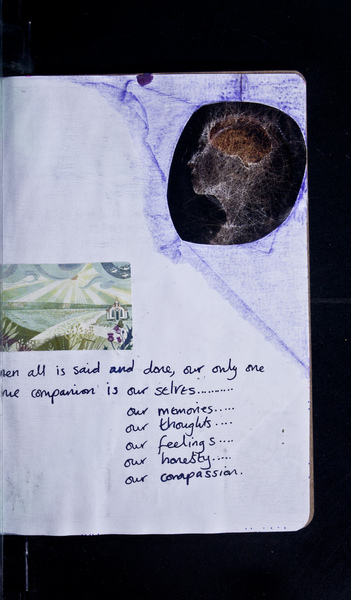 hen all is said and done, our only one
rue companion is our selves..........
our memories.....
our thoughts....
our feelings....
our honesty.....
our compassion.